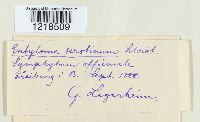 1218509
Entyloma serotinum Schröt.
Symphytum officinale
Freiburg i. B. Sept. 1888.
G. Lagerheim.